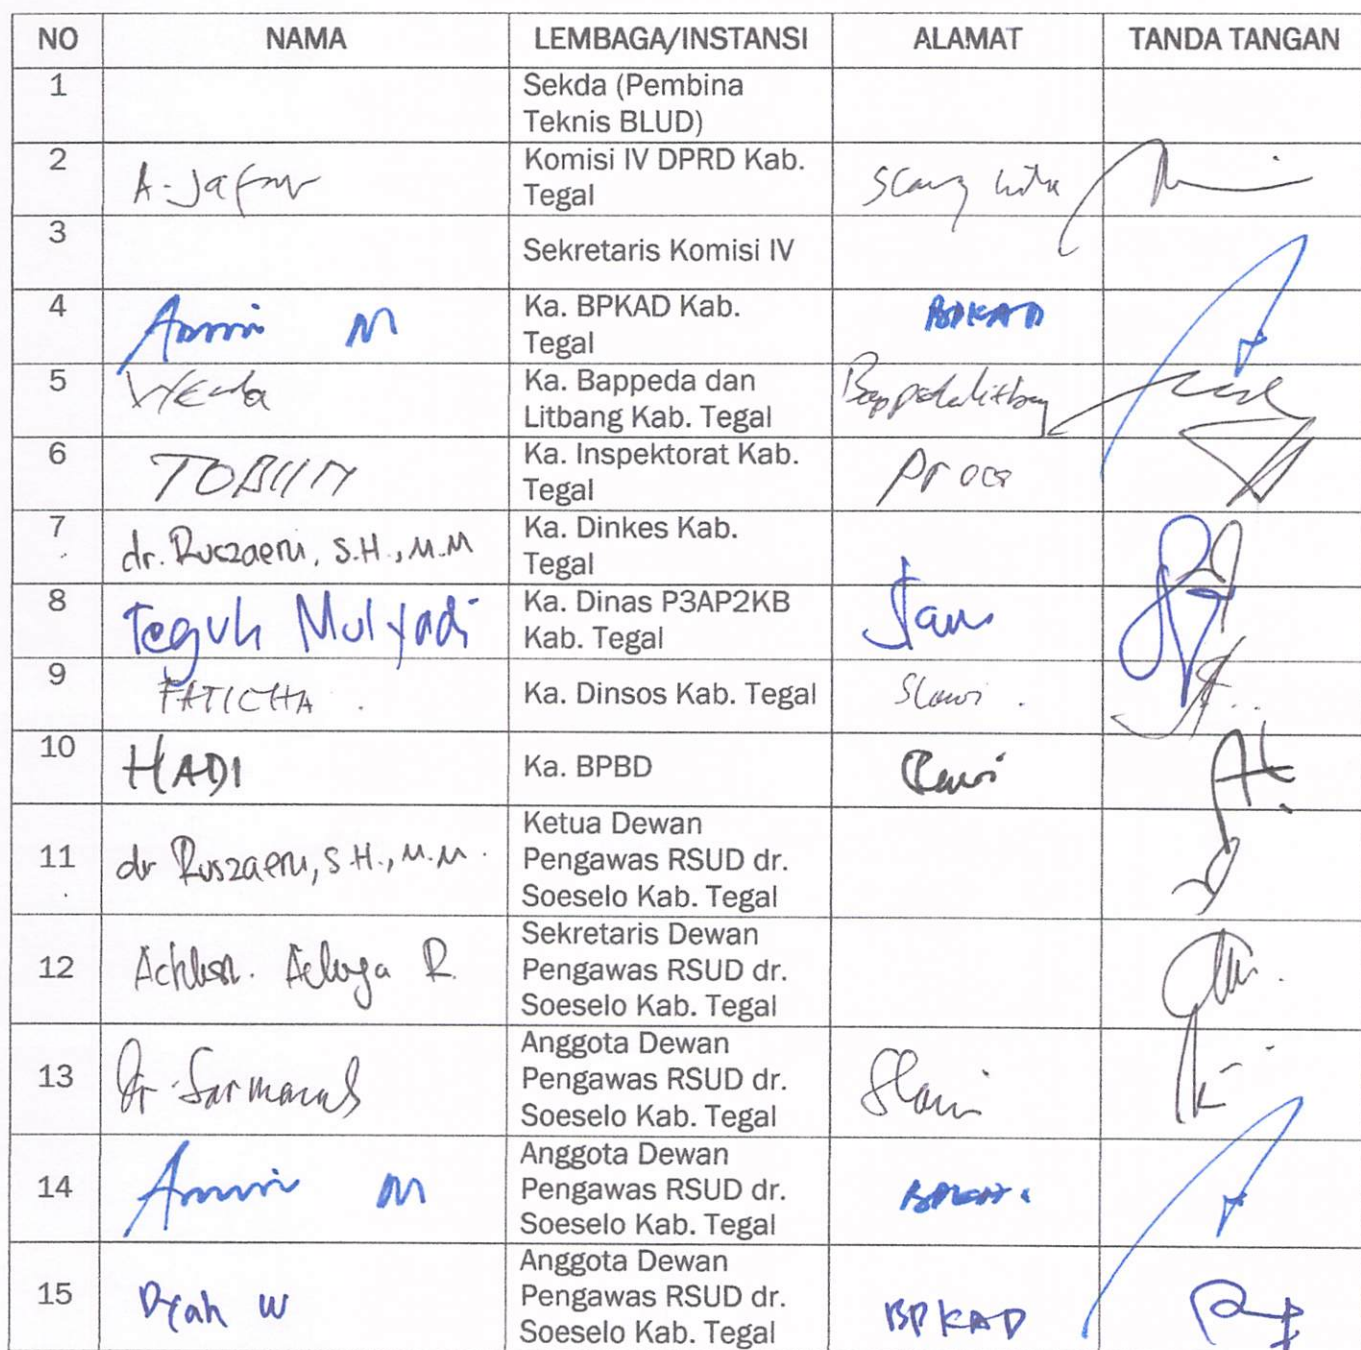 NO NAMA LEMBAGA/INSTANSI ALAMAT TANDA TANGAN
1 Sekda (Pembina
Teknis BLUD)
2 A. Jafar Komisi IV DPRD Kab.
Tegal
3 Sekretaris Komisi IV
4 Amin M Ka. BPKAD Kab. BPKAD
Tegal
5 Ka. Bappeda dan Bappedalitbang
Litbang Kab. Tegal
6 Ka. Inspektorat Kab.
Tegal
7 dr. Ruszaeni, S.H., M.M Ka. Dinkes Kab.
Tegal
8 Teguh Mulyadi Ka. Dinas P3AP2KB
Kab. Tegal
9 FATICHA . Ka. Dinsos Kab. Tegal Slawi .
10 HADI Ka. BPBD
11 dr Ruszaeni, S.H., M.M. Ketua Dewan
Pengawas RSUD dr.
Soeselo Kab. Tegal
12 R. Sekretaris Dewan
Pengawas RSUD dr.
Soeselo Kab. Tegal
13 Anggota Dewan Slawi
Pengawas RSUD dr.
Soeselo Kab. Tegal
14 Amin M Anggota Dewan BPKAD
Pengawas RSUD dr.
Soeselo Kab. Tegal
15 Dyah W Anggota Dewan BPKAD
Pengawas RSUD dr.
Soeselo Kab. Tegal